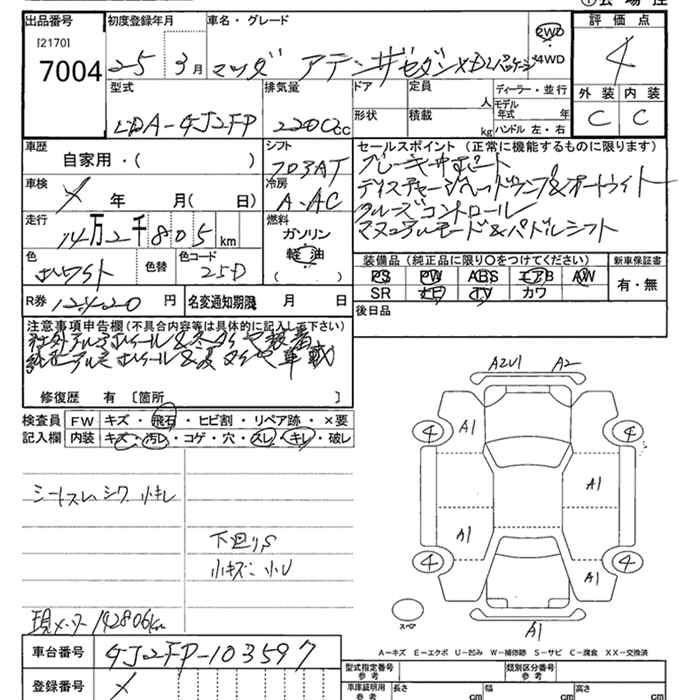 出品番号 初度登録年月 車名・グレード 評価点
[2170]
7004
25 3月 マツダ アテンザセダン XD Lパッケージ 2WD 4WD 4
型式 排気量 ドア 定員 人 ディーラー・並行 外装 内装
LDA-GJ2FP 2200cc 形状 積載 kg モデル年式 年 ハンドル 左・右 C C
車歴 シフト セールスポイント (正常に機能するものに限ります)
自家用・( ) AT
ディスチャージヘッドランプ&オートライト
車検 冷房
年 月( 日) A・AC
クルーズコントロール
マニュアルモード&パドルシフト
走行 燃料
14万2千805km ガソリン
軽油
( )
色 色替 色コード
ホワイト 25D
装備品 (純正品に限り○をつけてください) 新車保証書
PS PW ABS エアB AW 有・無
SR ナビ TV カワ
R券 円 名変通知期限 月 日
後日品
注意事項申告欄(不具合内容等は具体的に記入して下さい)
社外アルミホイール&冬タイヤ装着
純正アルミホイール&夏タイヤ車載
修復歴 有 [箇所 ]
検査員記入欄 FW キズ・飛石・ヒビ割・リペア跡・×要
内装 キズ・汚レ・コゲ・穴・スレ・キレ・破レ
シートスレ シワ 小キレ
下廻りS
小キズ 小U
現メーター 142806km
A2U1 A2
4 A1 4
A1
A1
4 A1 4
スペア
A1
A-キズ E-エクボ U-凹み W-補修跡 S-サビ C-腐食 XX-交換済
車台番号 GJ2FP-103597
登録番号
型式指定番号 参考 類別区分番号 参考
車庫証明用 参考 長さ cm 幅 cm 高さ cm